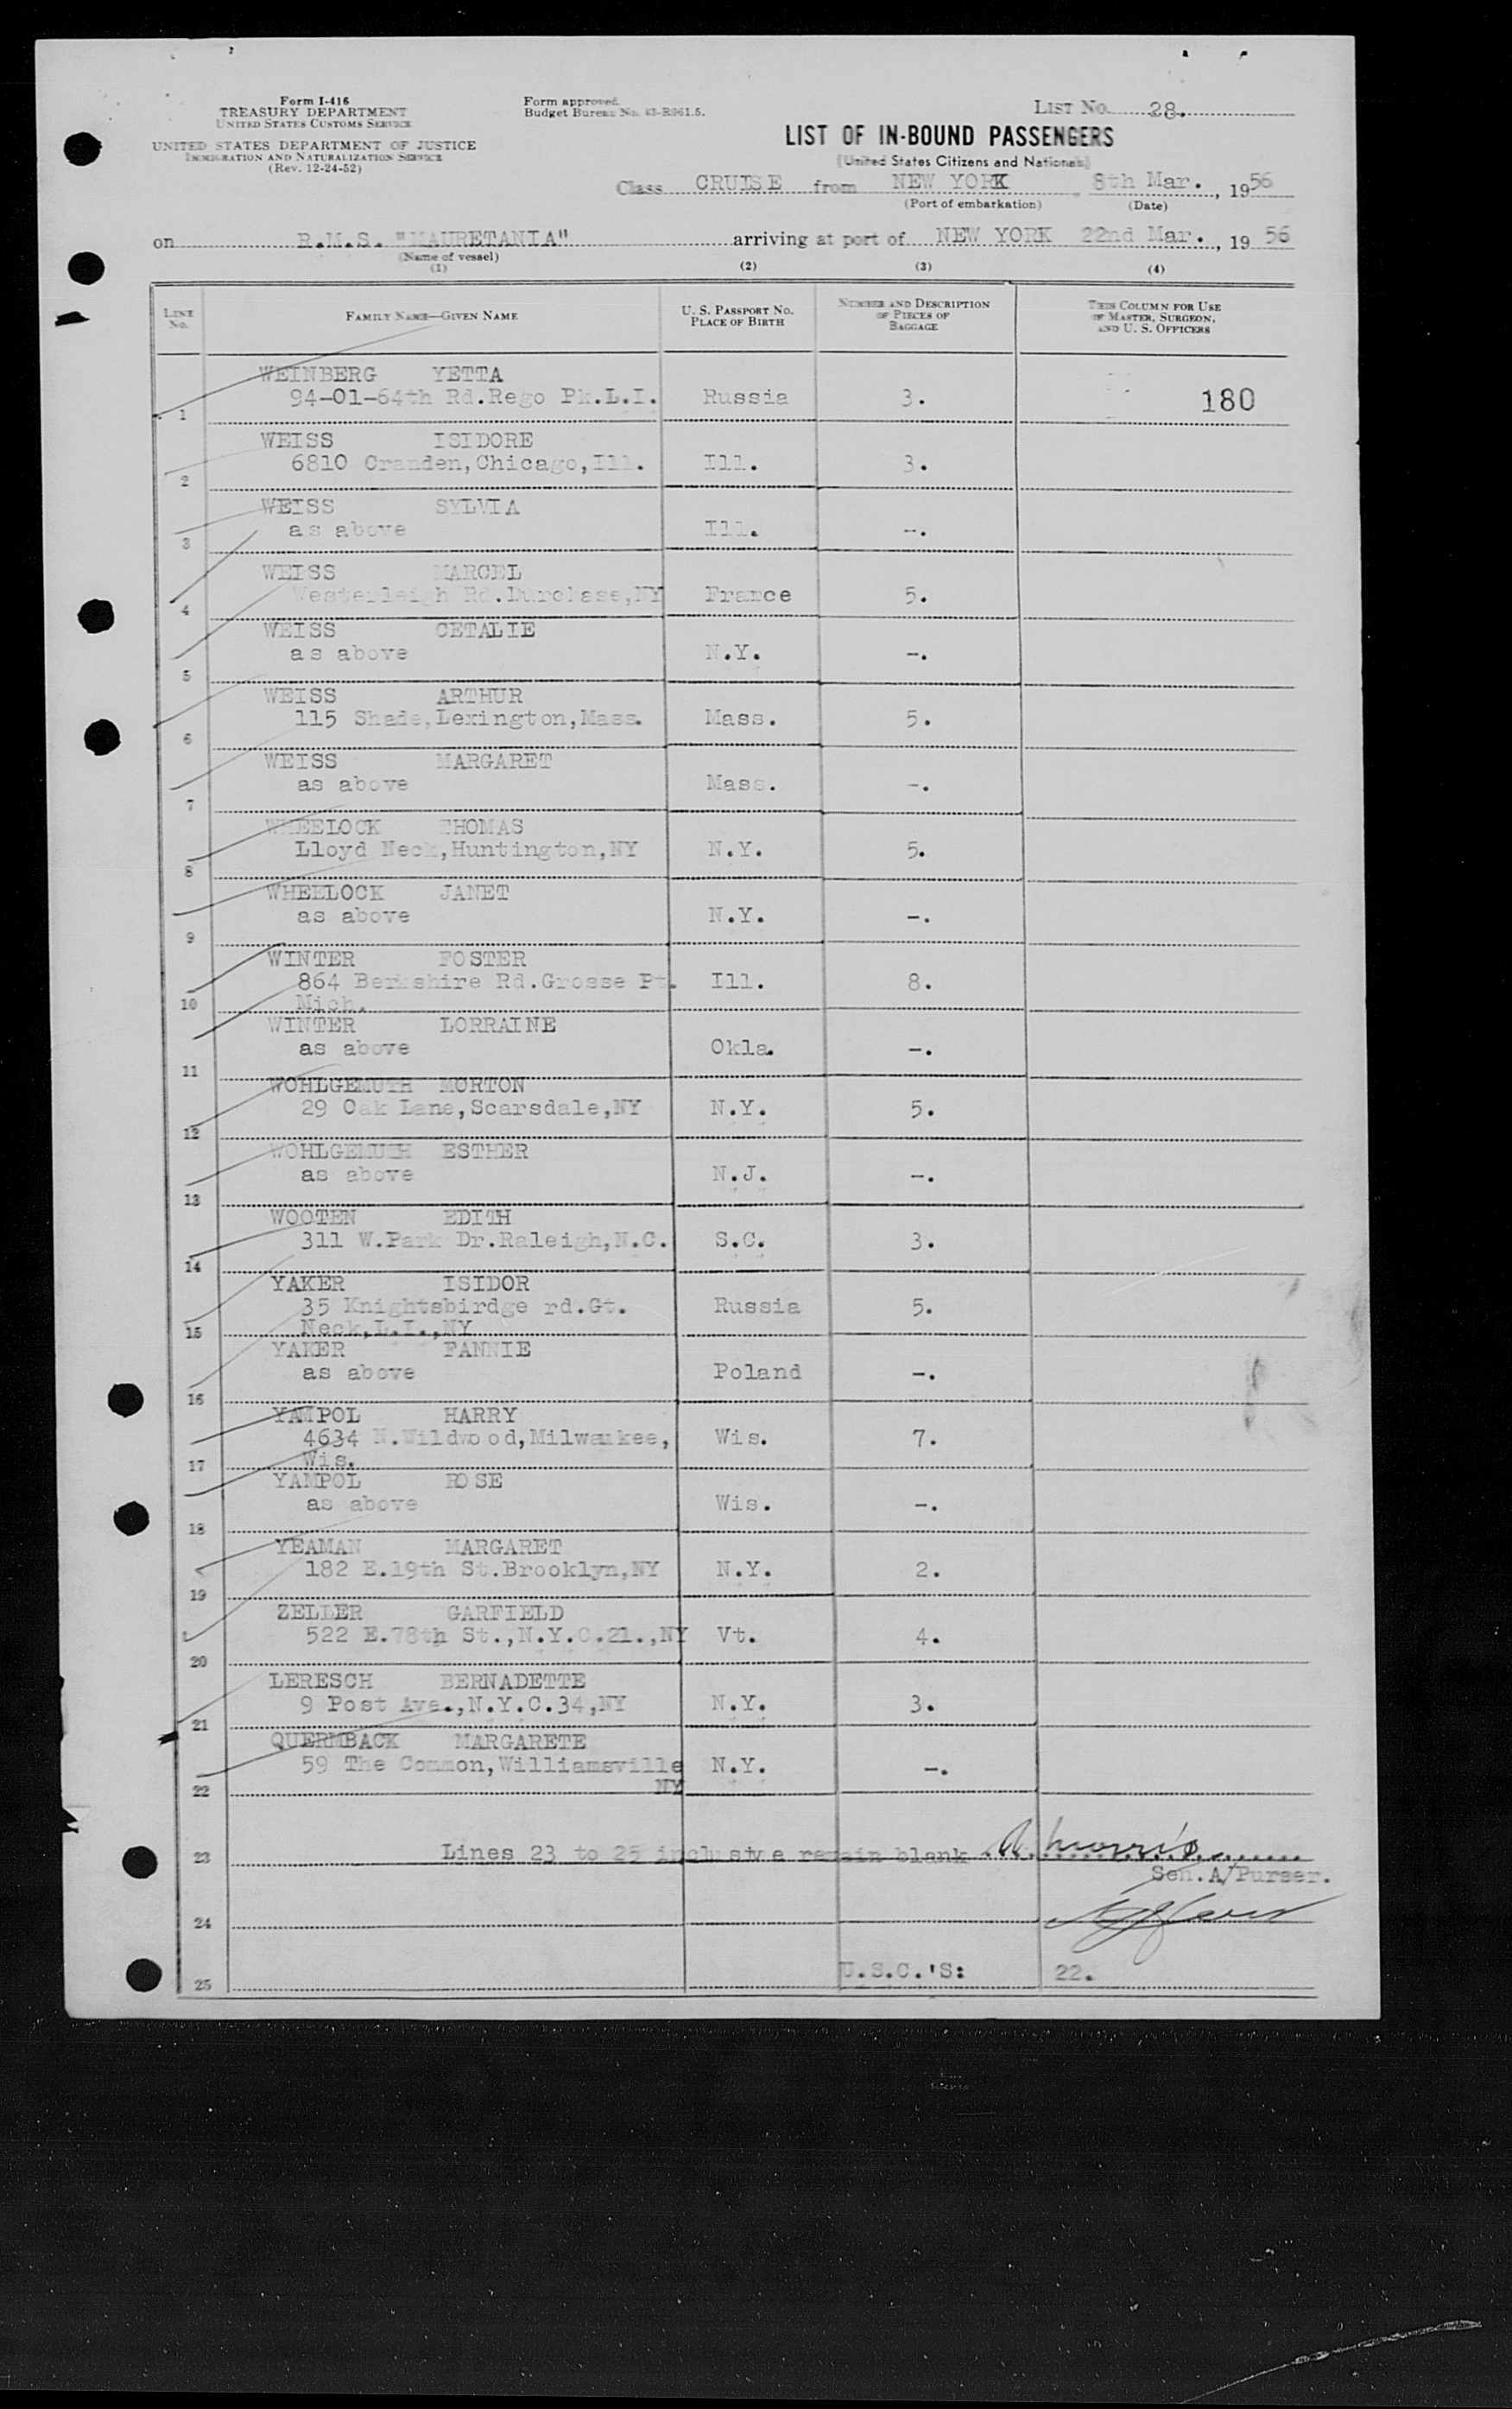 Form I-416
TREASURY DEPARTMENT
UNITED STATES CUSTOMS SERVICE
UNITED STATES DEPARTMENT OF JUSTICE
IMMIGRATION AND NATURALIZATION SERVICE
(Rev. 12-24-52)
Form approved.
Budget Bureau No. 43-R061.5.
LIST NO. 28.
LIST OF IN-BOUND PASSENGERS
(United States Citizens and Nationals)
Class CRUISE from NEW YORK, 8th Mar., 1956
(Port of embarkation) (Date)
on R.M.S. "MAURETANIA" arriving at port of NEW YORK 22nd Mar., 1956
(Name of vessel)
(1) (2) (3) (4)
LINE No.
FAMILY NAME—GIVEN NAME
U. S. PASSPORT NO.
PLACE OF BIRTH
NUMBER AND DESCRIPTION
OF PIECES OF
BAGGAGE
THIS COLUMN FOR USE
OF MASTER, SURGEON,
AND U. S. OFFICERS
WEINBERG YETTA
94-01-64th Rd.Rego Pk.L.I. Russia 3. 180
1
WEISS ISIDORE
6810 Cranden,Chicago,Ill. Ill. 3.
2
WEISS SYLVIA
as above Ill. -.
3
WEISS MARCEL
Westerleigh Rd. NY France 5.
4
WEISS CETALIE
as above N.Y. -.
5
WEISS ARTHUR
115 Shade,Lexington,Mass. Mass. 5.
6
WEISS MARGARET
as above Mass. -.
7
WHEELOCK THOMAS
Lloyd Neck,Huntington,NY N.Y. 5.
8
WHEELOCK JANET
as above N.Y. -.
9
WINTER FOSTER
864 Berkshire Rd.Grosse Pt. Ill. 8.
10 Mich.
WINTER LORRAINE
as above Okla. -.
11
WOHLGEMUTH MORTON
29 Oak Lane,Scarsdale,NY N.Y. 5.
12
WOHLGEMUTH ESTHER
as above N.J. -.
13
WOOTEN EDITH
311 W.Park Dr.Raleigh,N.C. S.C. 3.
14
YAKER ISIDOR
35 Knightsbirdge rd.Gt. Russia 5.
15 Neck,L.I.,NY
YAKER FANNIE
as above Poland -.
16
YAMPOL HARRY
4634 N.Wildwood,Milwaukee, Wis. 7.
17 Wis.
YAMPOL ROSE
as above Wis. -.
18
YEAMAN MARGARET
182 E.19th St.Brooklyn,NY N.Y. 2.
19
ZELLER GARFIELD
522 E.78th St.,N.Y.C.21.,NY Vt. 4.
20
LERESCH BERNADETTE
9 Post Ave.,N.Y.C.34,NY N.Y. 3.
21
QUERMBACK MARGARETE
59 The Common,Williamsville N.Y. -.
22 NY
23 Lines 23 to 25 inclusive remain blank A. Morris
Sen.A/Purser.
24
25 U.S.C.'S: 22.